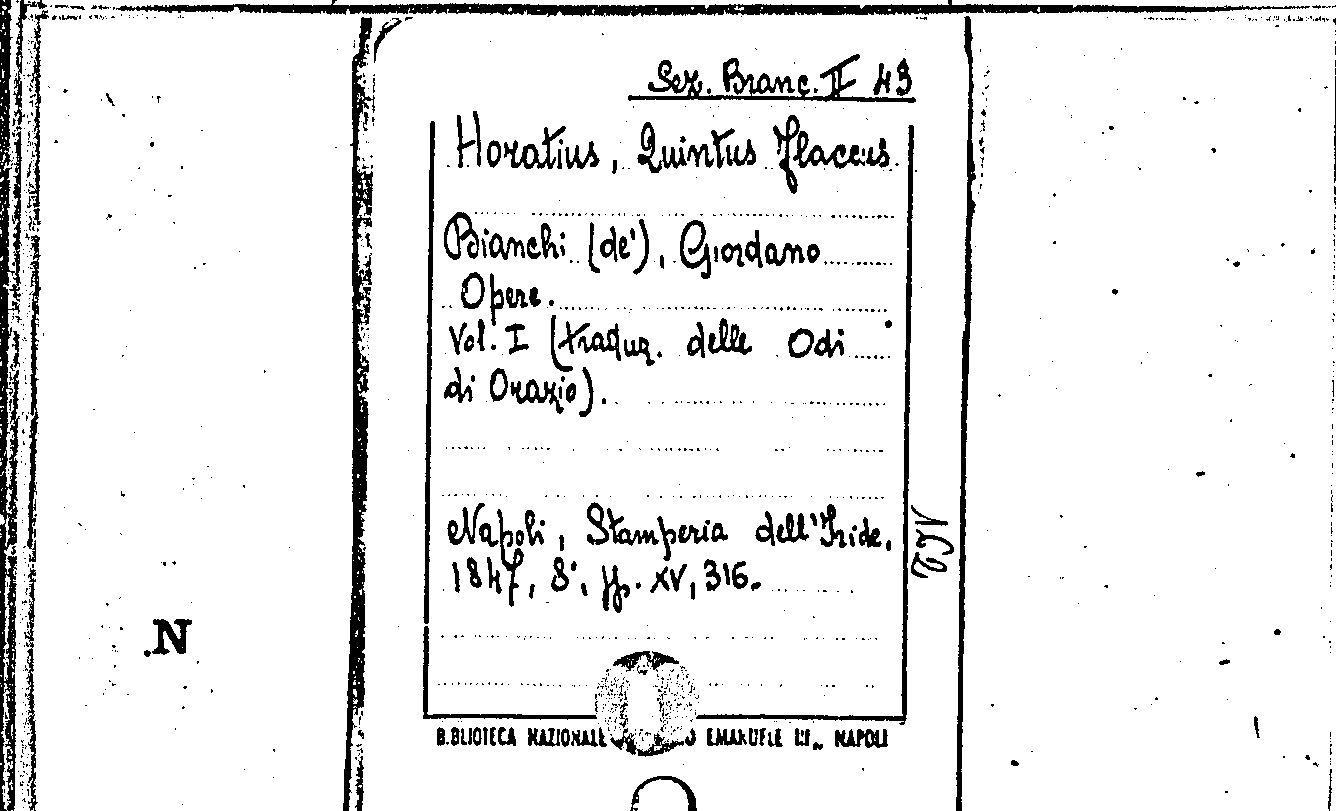 Sez. Branc. II 43
Horatius, Quintus Flaccus
Bianchi (de'), Giordano
Opere.
Vol. I (traduz. delle Odi
di Orazio).
Napoli, Stamperia dell'Iride,
1847, 8°, pp. XV, 316.
.N
BIBLIOTECA NAZIONALE EMANUELE III„ NAPOLI